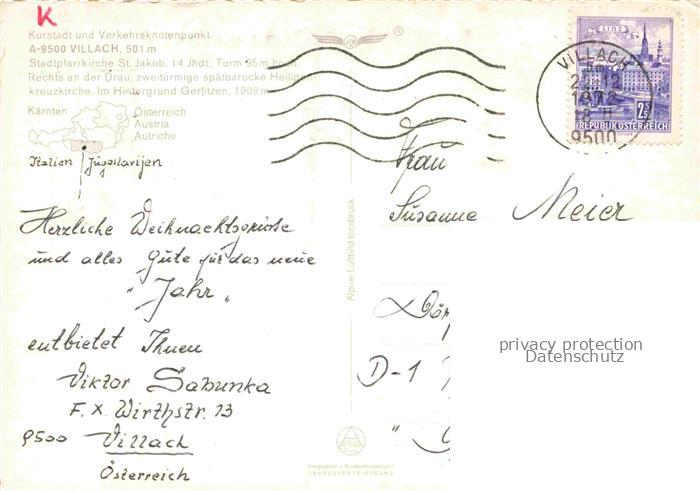 K
Kurstadt und Verkehrsknotenpunkt
A-9500 VILLACH, 501 m
Stadtpfarrkirche St. Jakob, 14 Jhdt., Turm 95 m hoch.
Rechts an der Drau, zweitürmige spätbarocke Heiligen-
kreuzkirche. Im Hintergrund Gerlitzen, 1909 m
Kärnten
Österreich
Austria
Autriche
Italien Jugoslavijen
Herzliche Weihnachtsgrüsse
und alles Gute für das neue
"Jahr"
entbietet Ihnen
Viktor Sabunka
F. X. Wirthstr. 13
9500 Villach
Österreich
Alpine Luftbild Innsbruck
Freigegeben v. Bundesministerium f.
LANDESVERTEIDIGUNG
LINZ
2.50
REPUBLIK ÖSTERREICH
VILLACH
12
1972
18
9500
Frau
Susanne Meier
D-1
privacy protection
Datenschutz